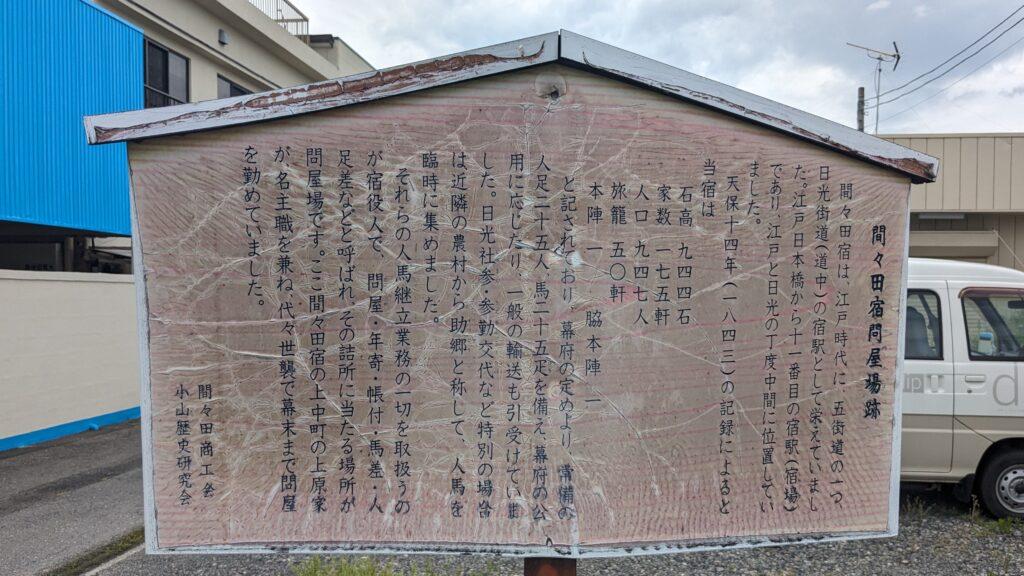 間々田宿問屋場跡
間々田宿は、江戸時代に、五街道の一つ
日光街道(道中)の宿駅として栄えていまし
た。江戸日本橋から十一番目の宿駅(宿場)
であり、江戸と日光の丁度中間に位置してい
ました。
天保十四年(一八四三)の記録によると
当宿は
石高 九四四石
家数 一七五軒
人口 九四七人
旅籠 五〇軒
本陣 一 脇本陣 一
と記されており、幕府の定めより、常備の
人足二十五人、馬二十五疋を備え、幕府の公
用に応じたり、一般の輸送も引受けていま
した。日光社参・参勤交代など特別の場合
は近隣の農村から助郷と称して、人馬を
臨時に集めました。
それらの人馬継立業務の一切を取扱うの
が宿役人で、問屋・年寄・帳付・馬差・人
足差などと呼ばれ、その詰所に当たる場所が
問屋場です。ここ間々田宿の上中町の上原家
が、名主職を兼ね、代々世襲で幕末まで問屋
を勤めていました。
間々田商工会
小山歴史研究会